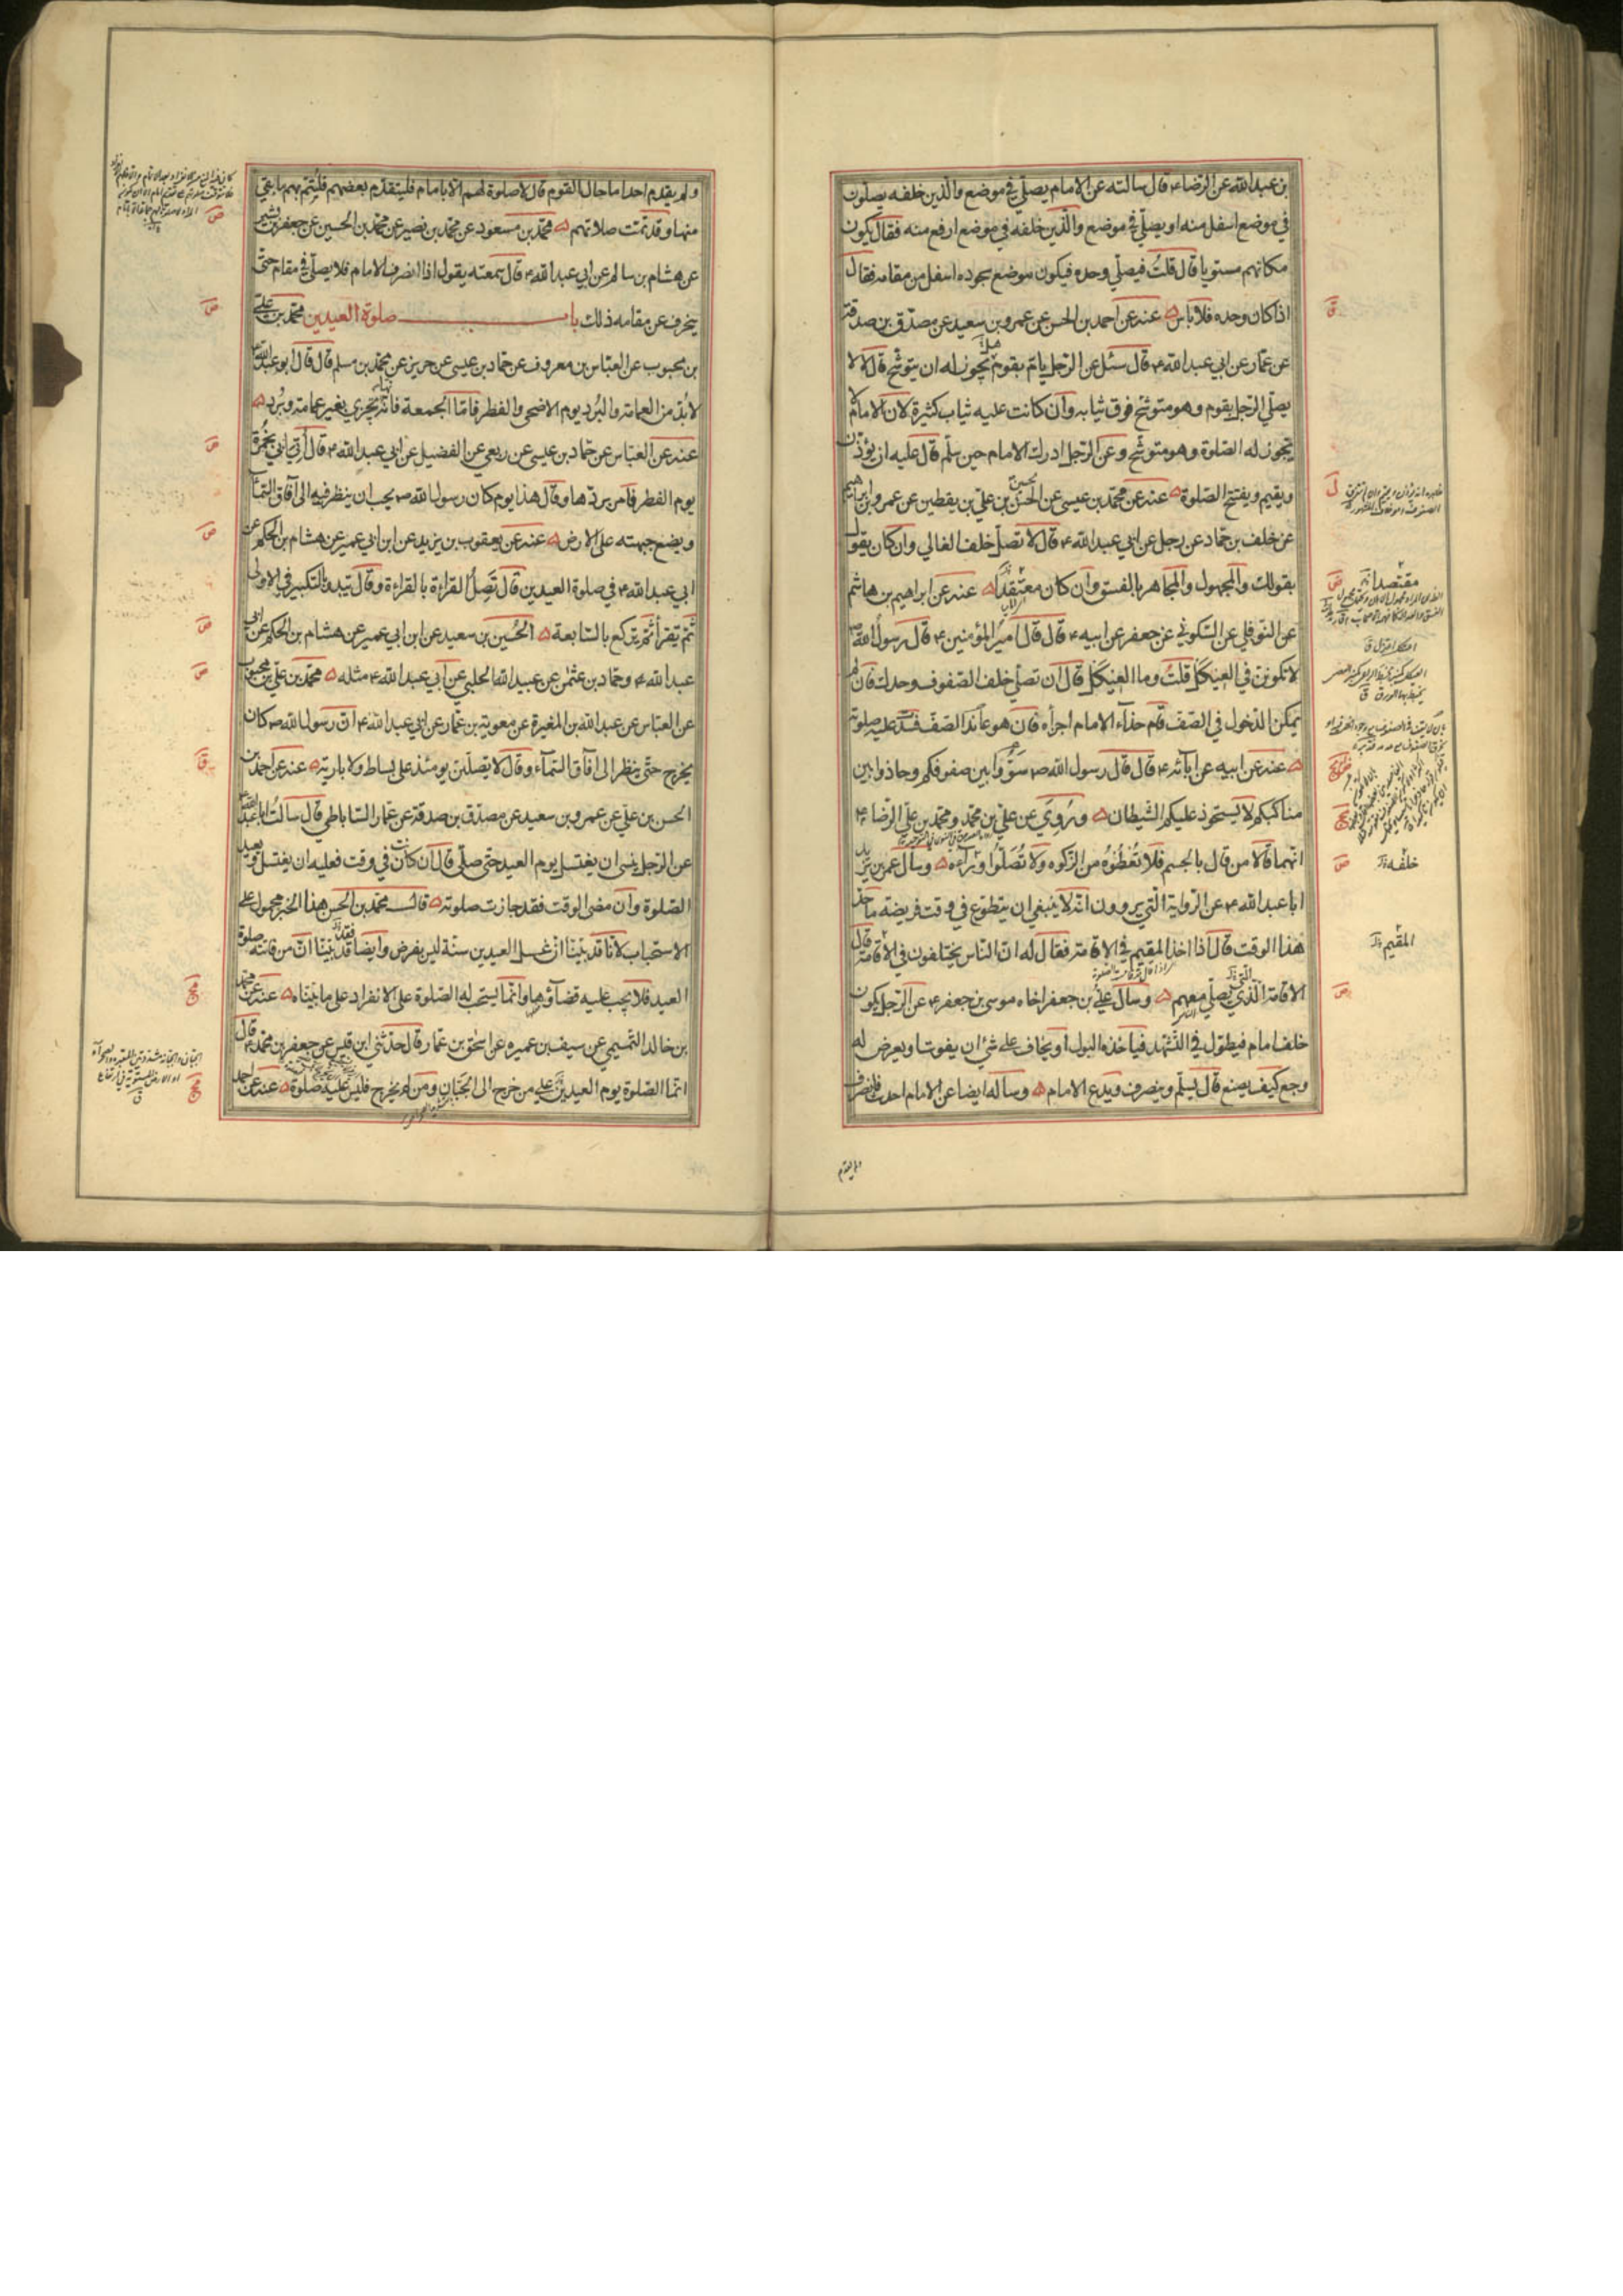 بن عبدالله عن الرضا ء قال سالته عن الامام يصلّي في موضع والذين خلفه يصلّون
في موضع اسفل منه او يصلّي في موضع والّذين خلفه في موضع ارفع منه فقال يكون
مكانهم مستويا قال قلتُ فيصلّي وحده فيكون موضع سجوده اسفل من مقامه فقال
اذا كان وحده فلا باس عنه عن احمد بن الحسن عن عمرو بن سعيد عن مصدّق بن صدقة
عن عمّار عن ابي عبدالله ء قال سئل عن الرّجل يامّ بقوم يجوز له ان يتوشّح قال لا لا
يصلّي الرّجل بقوم وهو متوشّح فوق ثيابه وان كانت عليه ثياب كثيرة لان الامام لا
يجوز له الصّلوة وهو متوشّح وعن الرّجل ادرك الامام حين سلّم قال عليه ان يؤذن
ويقيم ويفتتح الصّلوة عنه عن محمّد بن عيسى عن الحسن بن علي بن يقطين عن عمرو بن ابراهيم
عن خلف بن حمّاد عن رجل عن ابي عبدالله ء قال لا تصلّ خلف الغالي وان كان يقول
بقولك والمجهول والمجاهر بالفسق وان كان معتقدًا عنه عن ابراهيم بن هاشم
عن النّوفلي عن السّكوني عن جعفر عن ابيه ء قال قال اميرُ المؤمنين ء قال رسولُ الله ص
لا تكونن في العيكل قلت وما العيكل قال ان تصلّي خلف الصّفوف وحدك فان لم
يمكن الدّخول في الصّف قام حذآء الامام اجزاه فان هو عاند الصّفّ فسد عليه صلوته
عنه عن ابيه عن آبائه ء قال قال رسول الله ص سَوّوا بين صفوفكم وحاذوا بين
مناكبكم لا يستحوذ عليكم الشّيطان ورُوِيَ عن عليّ بن محمّد ومحمّد بن عليّ الرّضا ء
انّهما قالا من قال بالجسم فلا تُعْطُوهُ من الزّكوة ولا تُصَلّوا وراءه وسال عمر بن يزيد
ابا عبدالله ء عن الرّواية الّتي يروون انّه لا ينبغي ان يتطوّع في وقت فريضة ما حدّ
هذا الوقت قال اذا اخذ المقيم في الاقامة فقال له انّ النّاس يختلفون في الاقامة قال
الاقامة الّذي يصلّي معهم وسال عليّ بن جعفر اخاه موسى بن جعفر ء عن الرّجل يكون
خلف امام فيطول في التّشهّد فياخذه البول او يخاف على شئ ان يفوت او يعرض له
وجع كيف يصنع قال يسلّم وينصرف ويدع الامام وساله ايضا عن الامام احدث فانصرف
خلفه
المقيم
ولم يقدم احدا ما حال القوم قال لا صلوة لهم الّا بامام فليتقدّم بعضهم فليُتمّ بهم ما بقي
منها وقد تمّت صلاتهم محمّد بن مسعود عن محمّد بن نصير عن محمّد بن الحسين عن جعفر بن بشير
عن هشام بن سالم عن ابي عبدالله ء قال سمعته يقول اذا انصرف الامام فلا يصلّي في مقام حتّى
ينحرف عن مقامه ذلك باب صلوة العيدين محمّد بن علي
بن محبوب عن العبّاس بن معروف عن حمّاد بن عيسى عن حريز عن محمّد بن مسلم قال قال ابو عبدالله ء
لا بُدّ من العمامة والبُرْد يوم الاضحى والفطر فامّا الجمعة فانّها تجزي بغير عمامة وبُرد
عنه عن العبّاس عن حمّاد بن عيسى عن ربعي عن الفضيل عن ابي عبدالله ء قال اُتي ابي بخُمْرة
يوم الفطر فامر بردّها وقال هذا يوم كان رسول الله ص يحبّ ان ينظر فيه الى آفاق السّمآء
ويضع جبهته على الارض عنه عن يعقوب بن يزيد عن ابن ابي عمير عن هشام بن الحكم عن
ابي عبدالله ء في صلوة العيدين قال تَصِلُ القراءة بالقراءة وقال تبدء بالتّكبير في الاولى
ثمّ تقرأ ثمّ تركع بالسّابعة الحُسين بن سعيد عن ابن ابي عمير عن هشام بن الحكم عن ابي
عبدالله ء وحمّاد بن عثمٰن عن عبيدالله الحلبي عن ابي عبدالله ء مثله محمّد بن علي بن محبوب
عن العبّاس عن عبدالله بن المغيرة عن معوية بن عمّار عن ابي عبدالله ء انّ رسول الله ص كان
يخرج حتّى ينظر الى آفاق السّمآء وقال لا يصلّينّ يومئذ على بساط ولا بارية عنه عن احمد بن
الحسن بن علي عن عمرو بن سعيد عن مصدّق بن صدقة عن عمّار السّاباطي قال سالتُ ابا عبدالله ء
عن الرّجل ينسى ان يغتسل يوم العيد حتى صلّى قال ان كان في وقت فعليه ان يغتسل ويعيد
الصّلوة وان مضى الوقت فقد جازت صلوته قال محمّد بن الحسن هذا الخبر محمول على
الاستحباب لانّا قد بيّنّا انّ غسل العيدين سنّة ليس بفرض وايضا فقد بيّنّا انّ من فاتته صلوة
العيد فلا يجب عليه قضآؤها وانّما يستحب له الصّلوة على الانفراد على ما بيّنّاه عنه عن محمّد
بن خالد التّميمي عن سيف بن عميره عن اسحٰق بن عمّار قال حدّثني ابن قيس عن جعفر بن محمّد ء قال
انّما الصّلوة يوم العيدين على من خرج الى الجبّان ومن لم يخرج فليس عليه صلوة عنه عن احمد